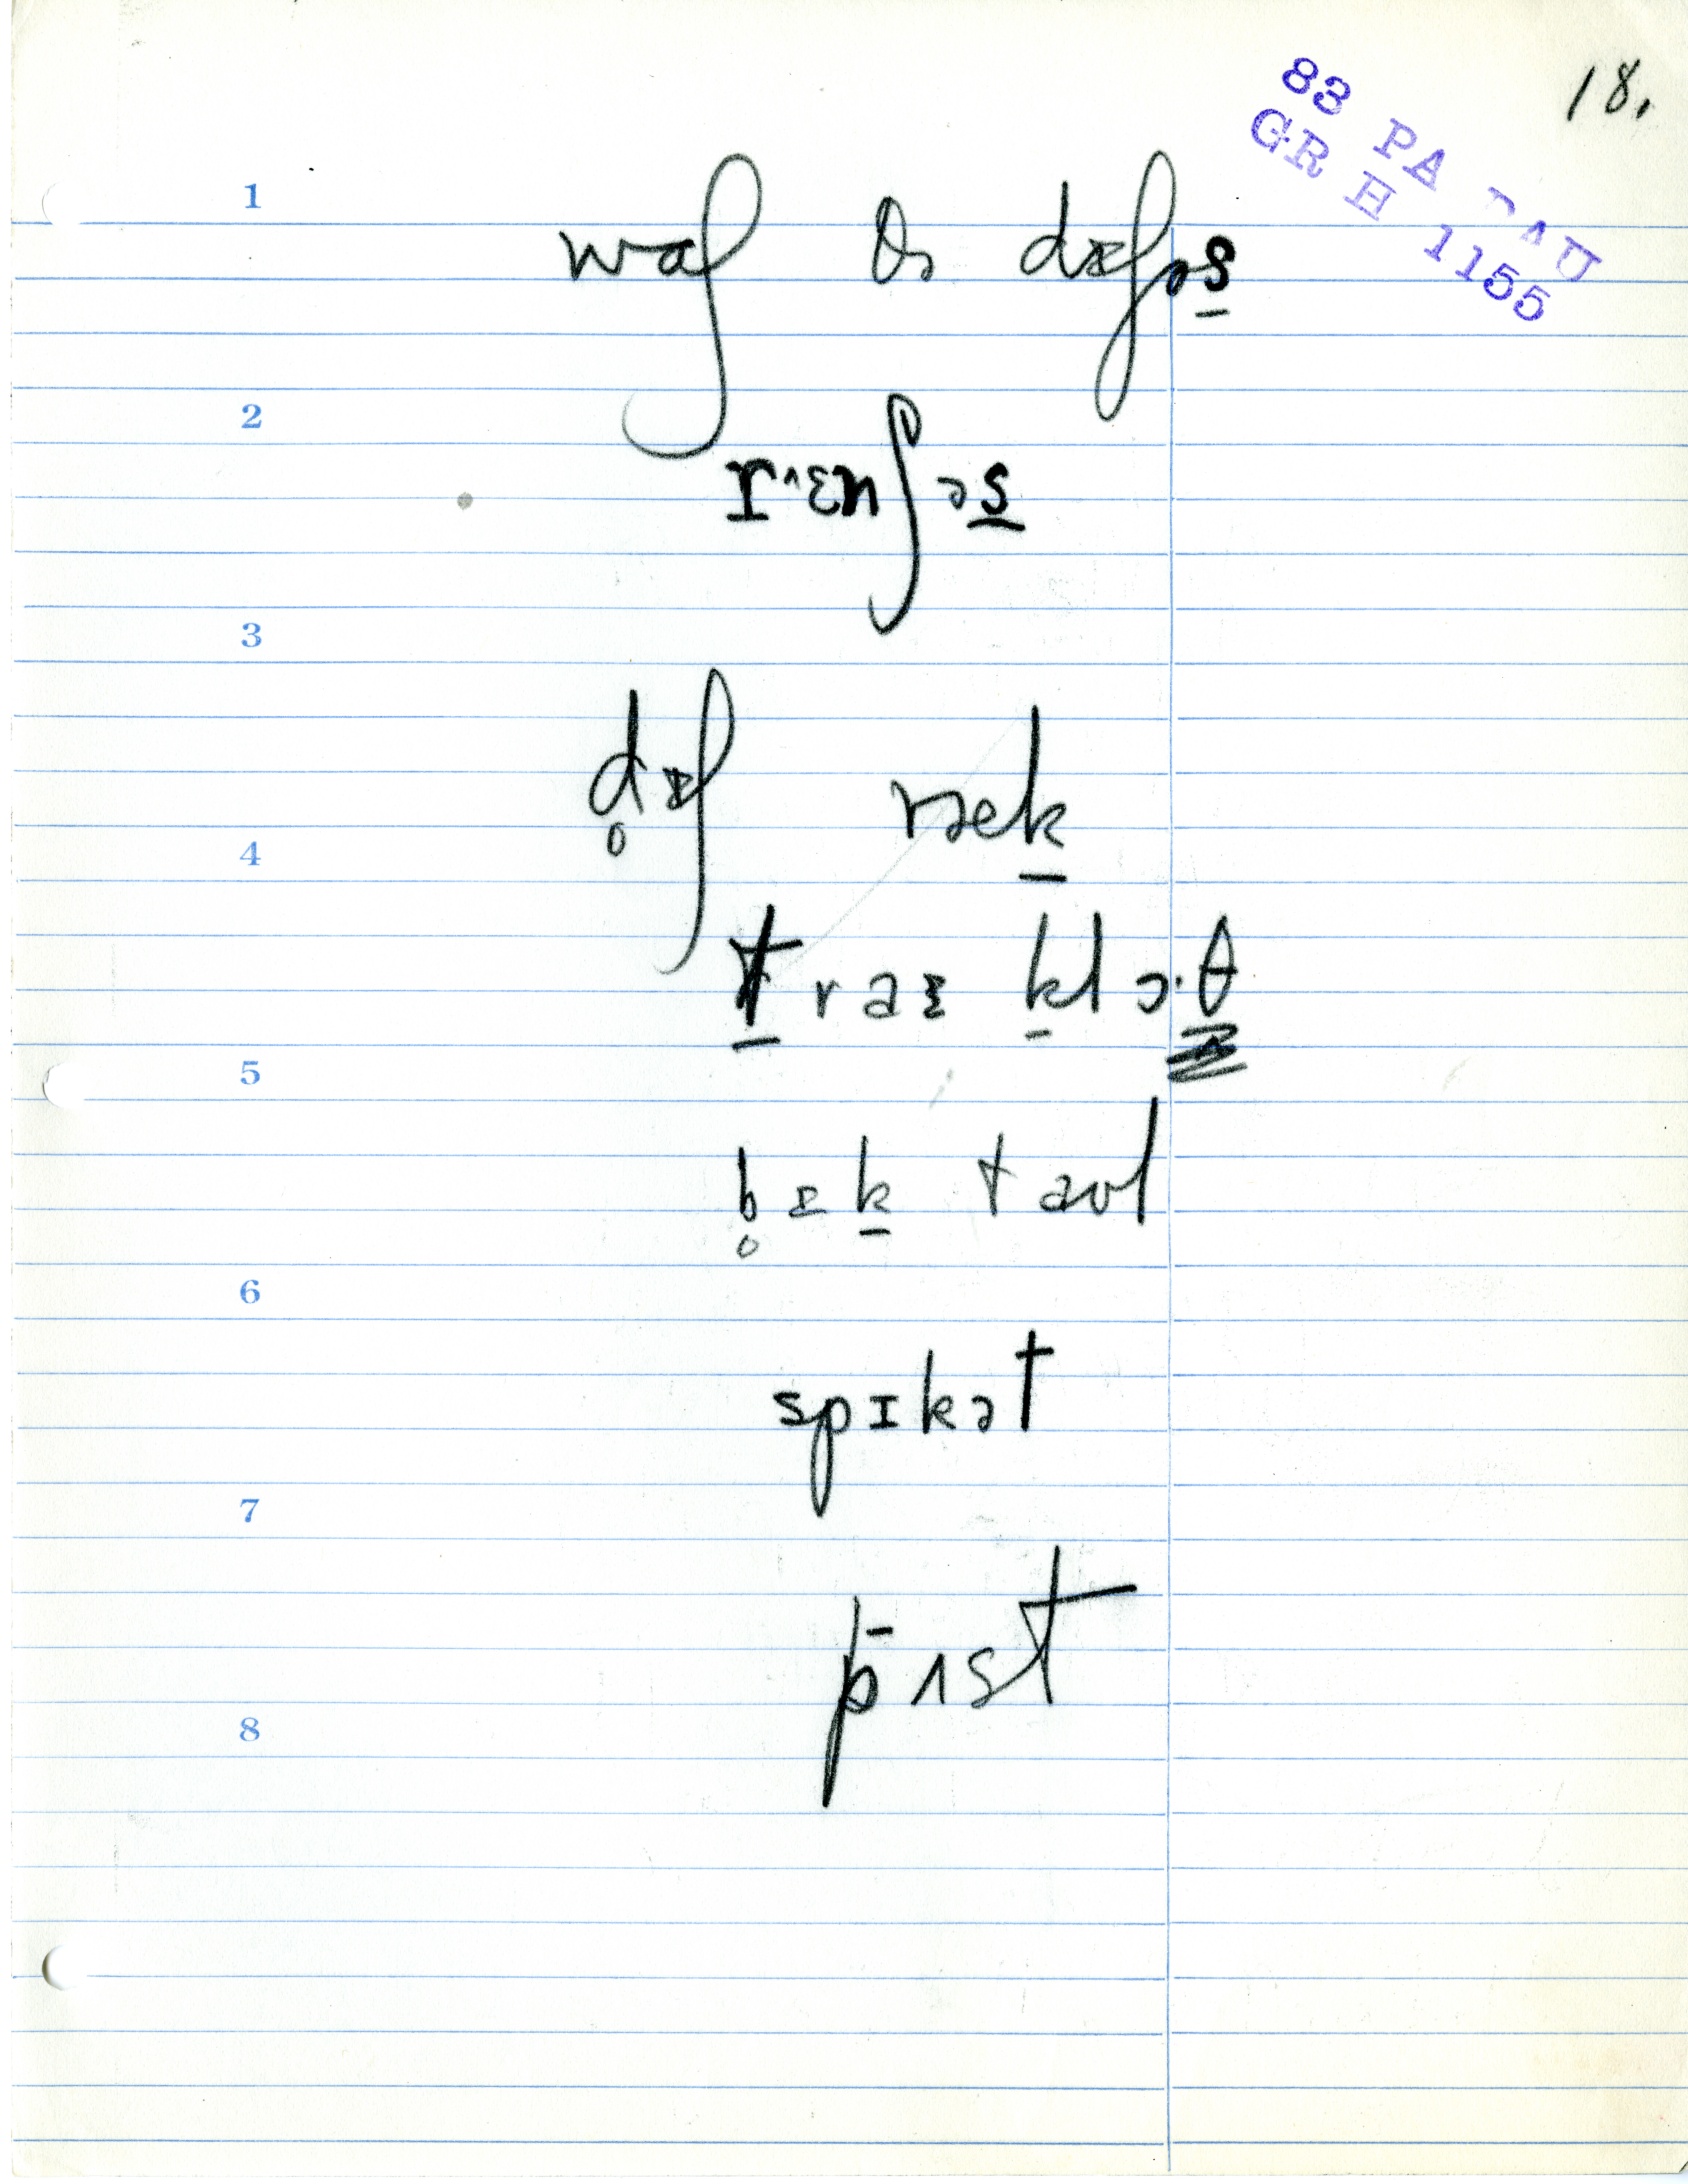 18.
83 PA
GR H 1155
1
waʃ ðə dɪʃəs̲
2
rˈɛnʃəs̲
3
d̥ɪʃ
4
t̲raɪ k̲lɔ·θ̲
5
b̥ɪk̲ taʊl
6
spɪkət
7
8